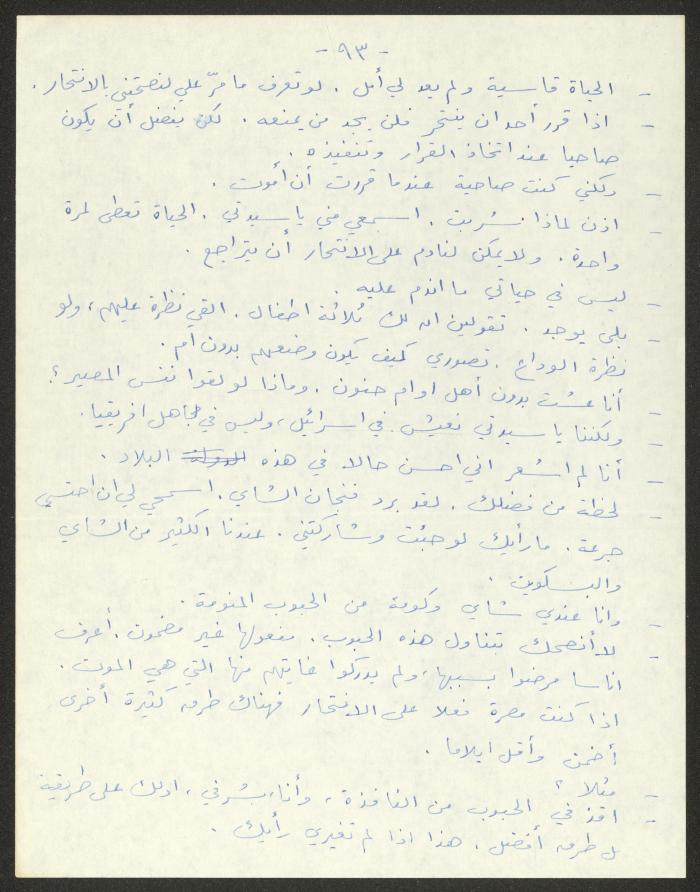 - ٩٣ -
- الحياة قاسية ولم يعد لي أمل . لو تعرف ما مرّ علي لنصحتني بالانتحار .
- اذا قرر أحد ان ينتحر فلن يجد من يمنعه . لكن يفضل أن يكون
صاحيا عند اتخاذ القرار وتنفيذه .
- ولكني كنت صاحية عندما قررت أن أموت .
- اذن لماذا شربت . اسمعي مني يا سيدتي . الحياة تعطى لمرة
واحدة . ولا يمكن لنادم على الانتحار أن يتراجع .
- ليس في حياتي ما اندم عليه .
- بلى يوجد . تقولين ان لك ثلاثة اطفال . القي نظرة عليهم ، ولو
نظرة الوداع . تصوري كيف يكون وضعهم بدون أم .
- أنا عشت بدون أهل او ام حنون . وماذا لو لقوا نفس المصير ؟
- ولكننا يا سيدتي نعيش في اسرائيل ، وليس في مجاهل افريقيا .
- أنا لم اشعر اني احسن حالا في هذه البلاد .
- لحظة من فضلك . لقد برد فنجان الشاي . اسمحي لي ان احتسي
جرعة . ما رأيك لو جئت وشاركتني . عندنا الكثير من الشاي
والبسكويت .
- وانا عندي شاي وكومة من الحبوب المنومة .
- لا أنصحك بتناول هذه الحبوب . مفعولها غير مضمون . أعرف
اناسا مرضوا بسببها ، ولم يدركوا غايتهم منها التي هي الموت .
اذا كنت مصرة فعلا على الانتحار فهناك طرق كثيرة أخرى
أضمن وأقل ايلاما .
- مثلا ؟
- اقذفي الحبوب من النافذة ، وأنا ، بشرفي ، ادلك على طريقة
بل طرق أفضل . هذا اذا لم تغيري رأيك .